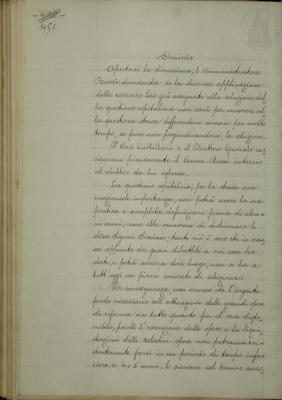 451
Omissis
Apertasi la discussione, l'Amministratore
Rossi domanda se la diversa applicazione
delle 100.000 lire già assegnate alla soluzione del
la quistione ospitaliera non sarà per nuocere al
la quistione stessa differendone ancora per molto
tempo, se pure non pregiudicandone, la soluzione.
Il Cav. Castellani e il Direttore Generale ras
sicurano pienamente il Comm. Rossi intorno
al dubbio da lui espresso.
La quistione ospitaliera, per la stessa sua
eccezionale importanza, non potrà avere la sua
pratica e completa definizione prima di alcu=
ni anni, come ebbe occasione di dichiarare lo
stesso Signor Sindaco: tanto ciò è vero che in cau
sa appunto dei gravi dibattiti a cui essa ha
dato, e potrà ancora dar luogo, non si ha a
tutt'oggi un piano concreto di soluzione.
Per conseguenza, non occorre che l'ingente
fondo necessario alla attuazione delle grandi opere
di riforma sia tutto quanto fin d'ora dispo
nibile, poichè l'esecuzione delle opere e la liqui
dazione delle relative spese non potranno evi
dentemente farsi in un periodo di tempo infe
riore a 4 o 5 anni. E siccome nel termine mas